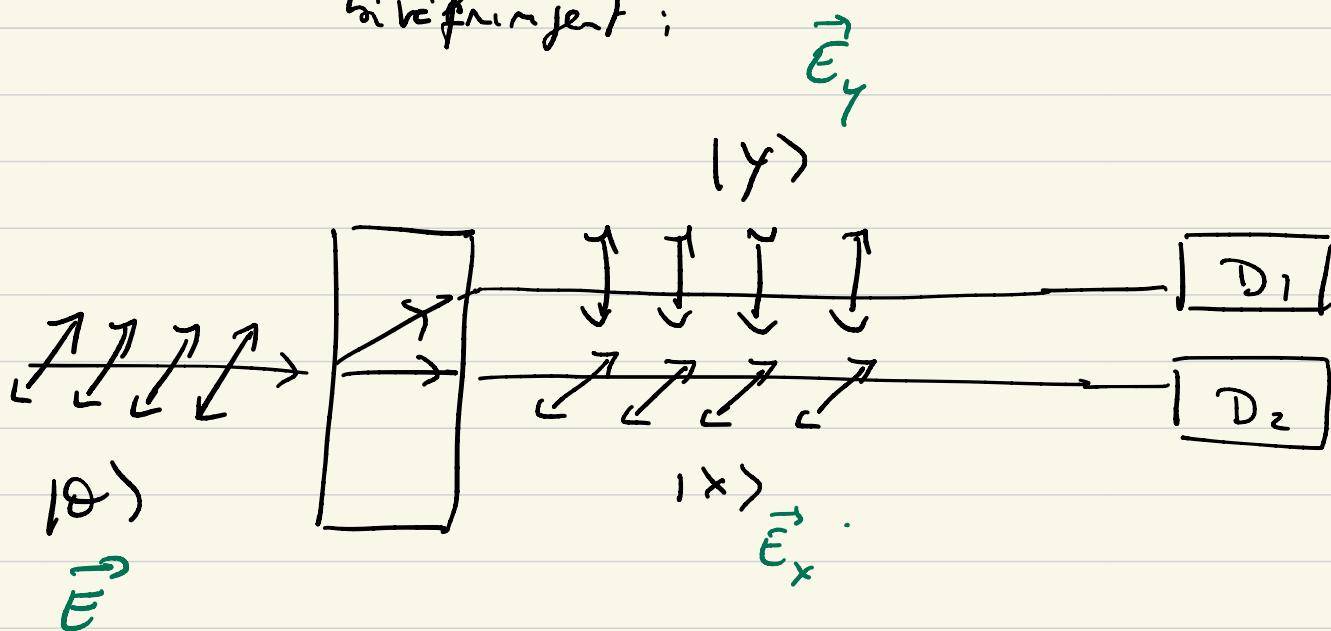 biréfringent :
E⃗_y
|y⟩
D1
D2
|θ⟩
|x⟩
E⃗_x
E⃗